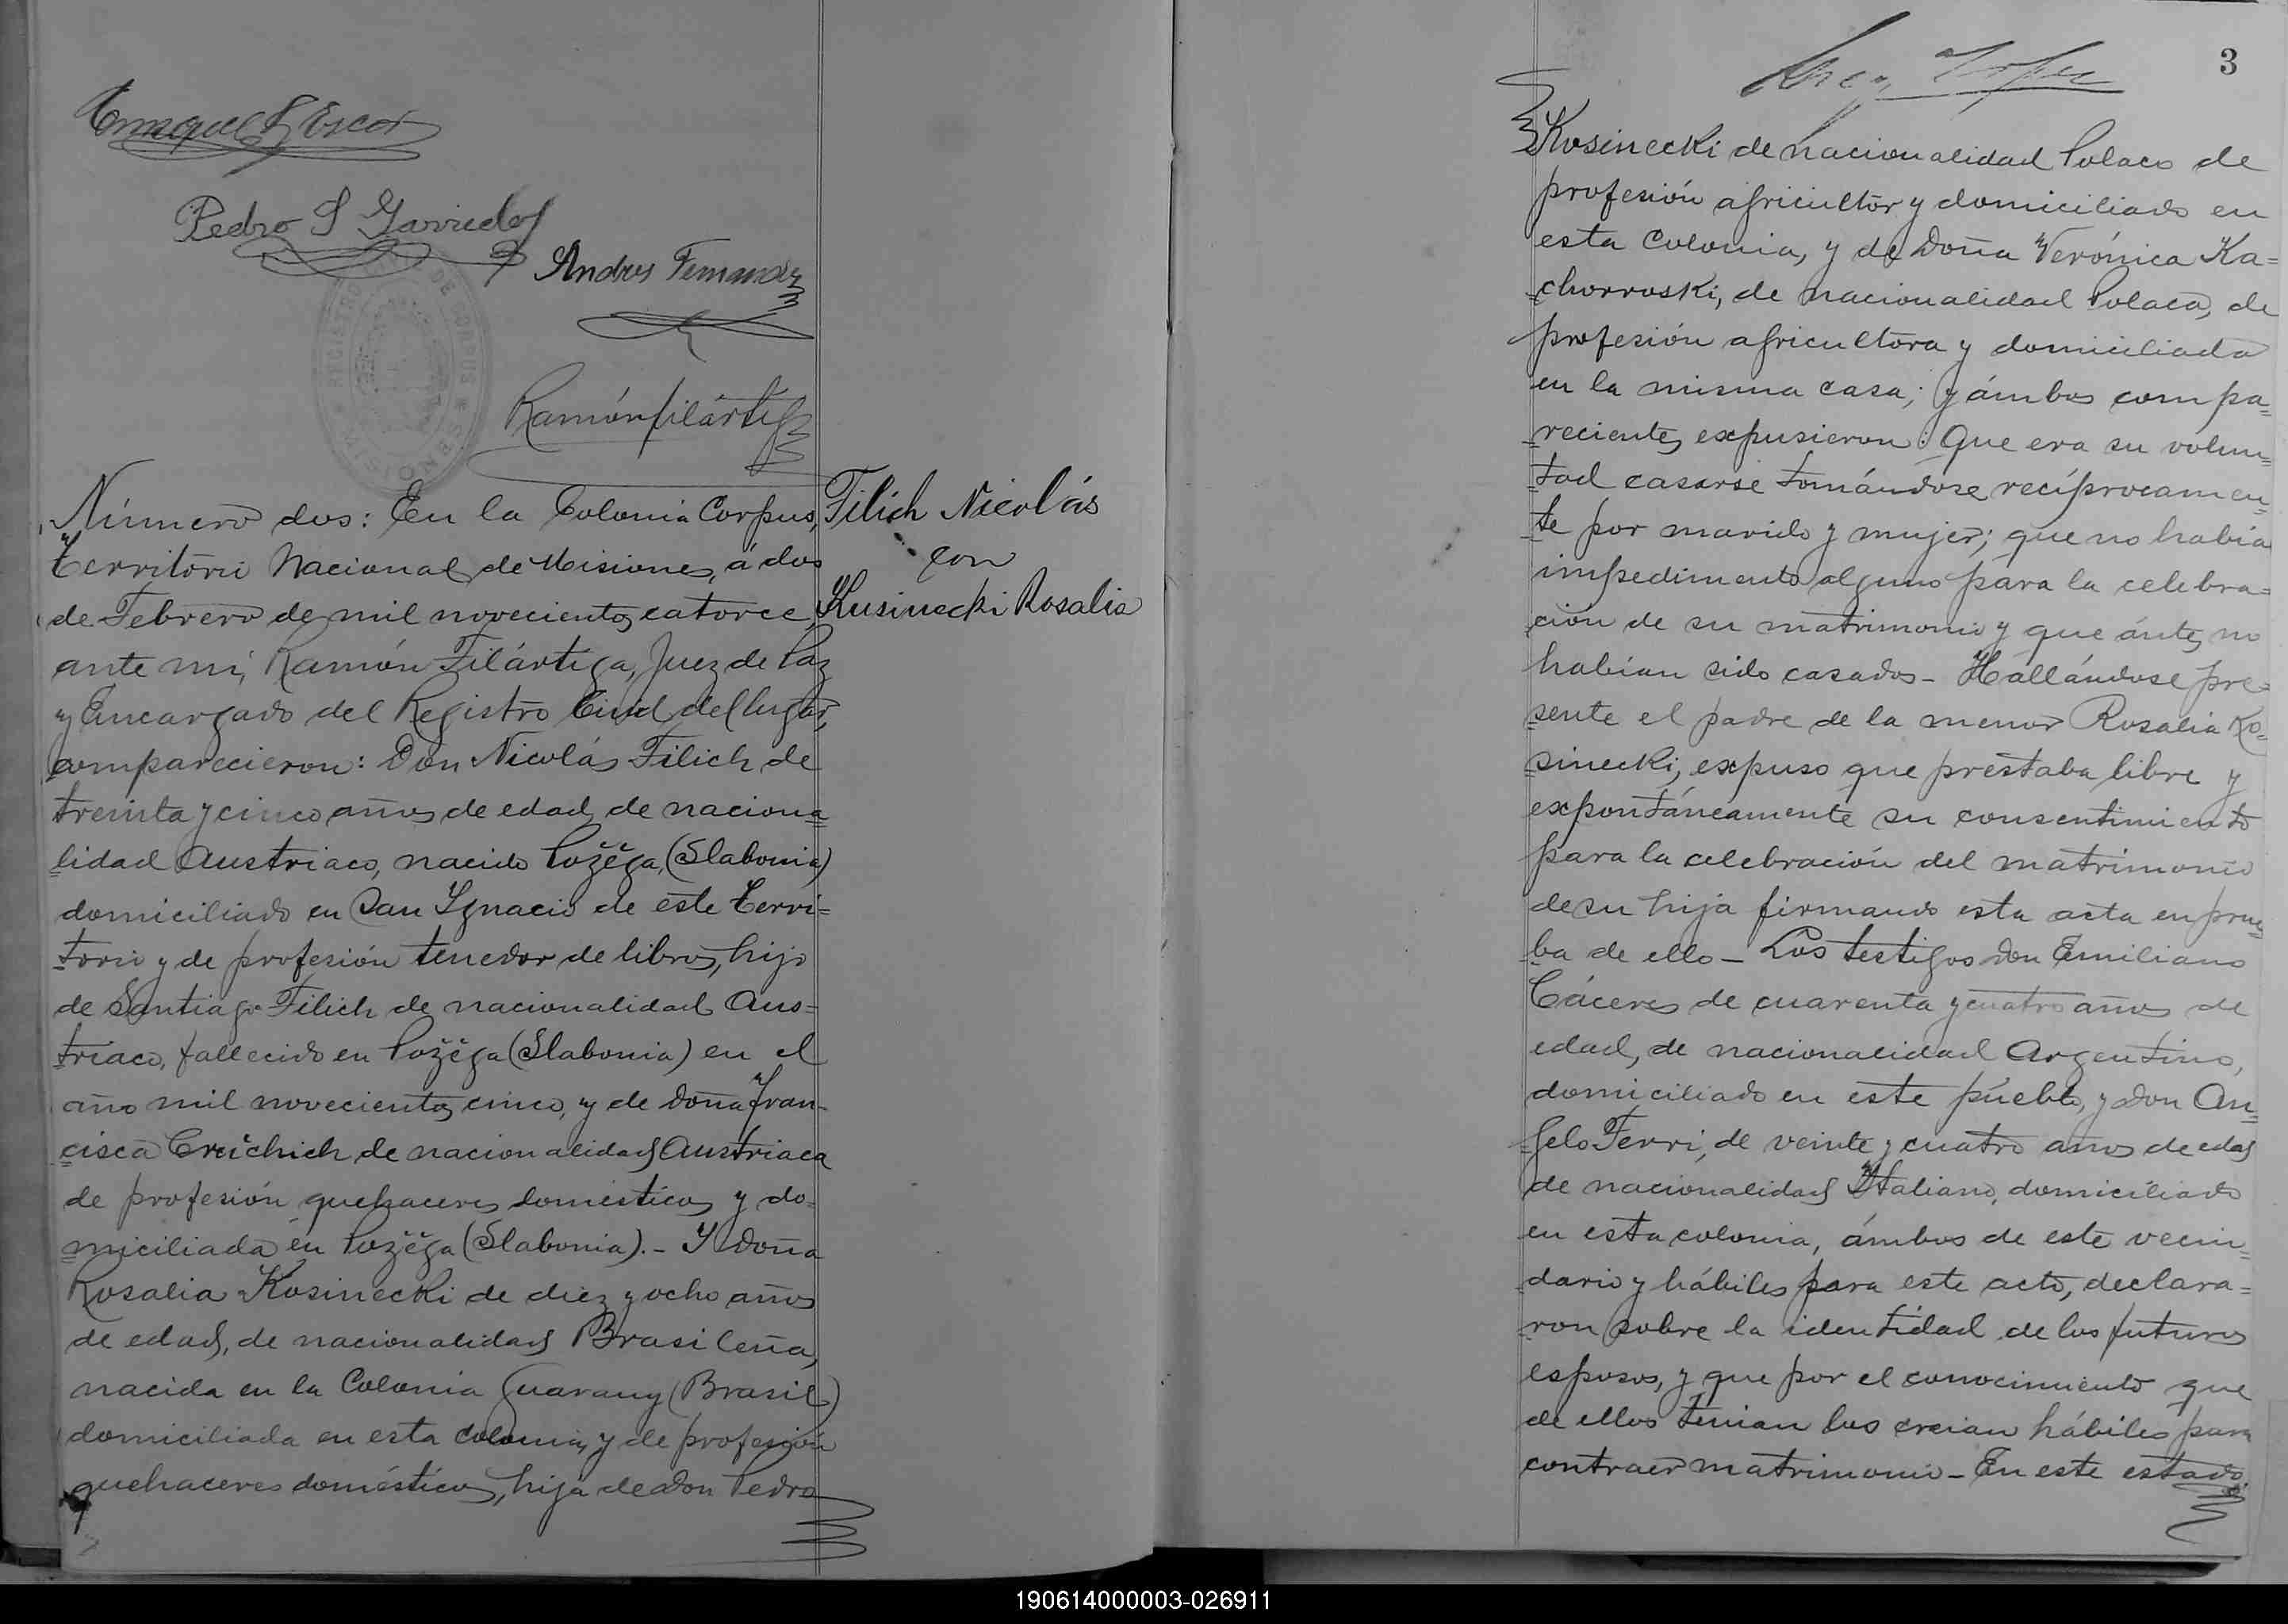 Enrique
Pedro S Garriedos
Andres Fernandez
Ramón Filártiga
REGISTRO DE CORPUS
Número dos: En la Colonia Corpus,
territorio Nacional de Misiones, á dos
de Febrero de mil novecientos catorce,
ante mí, Ramón Filártiga, Juez de Paz
y Encargado del Registro Civil del lugar,
comparecieron: Don Nicolás Filich de
treinta y cinco años de edad, de naciona=
lidad Austriaco, nacido Požěga, (Slabonia)
domiciliado en San Ygnacio de este terri=
torio y de profesión tenedor de libros, hijo
de Santiago Filich de nacionalidad Aus=
triaco, fallecido en Požěga (Slabonia) en el
año mil novecientos cinco, y de doña Fran-
cisca de nacionalidad Austriaca
de profesión quehaceres domésticos y do=
miciliada en Požěga (Slabonia).- Y doña
Rosalia Kosinecki de diez y ocho años
de edad, de nacionalidad Brasileña,
nacida en la Colonia Guarany (Brasil)
domiciliada en esta colonia, y de profesión
quehaceres domésticos, hija de don Pedro
Filich Nicolás
con
Kusinecki Rosalia
3
Kosinecki de nacionalidad Polaco de
profesión agricultor y domiciliado en
esta Colonia, y de Doña Verónica Ka=
chorroski, de nacionalidad Polaca, de
profesión agricultora y domiciliada
en la misma casa; y ámbos compa=
recientes expusieron: Que era su volun=
tad casarse tomándose recíprocamen=
te por marido y mujer; que no había
impedimento alguno para la celebra=
ción de su matrimonio y que ántes no
habían sido casados- Hallándose pre=
sente el padre de la menor Rosalia Ko=
sinecki, expuso que prestaba libre y
expontáneamente su consentimiento
para la celebración del matrimonio
de su hija firmando esta acta en prue=
ba de ello- Los testigos don Emiliano
Cáceres de cuarenta y cuatro años de
edad, de nacionalidad Argentino,
domiciliado en este pueblo, y don An=
gelo Ferri, de veinte y cuatro años de edad
de nacionalidad Ytaliano, domiciliado
en esta colonia, ámbos de este vecin=
dario y hábiles para este acto, declara=
ron sobre la identidad de los futuros
esposos, y que por el conocimiento que
de ellos tenian los creian hábiles para
contraer matrimonio- En este estado
190614000003-026911